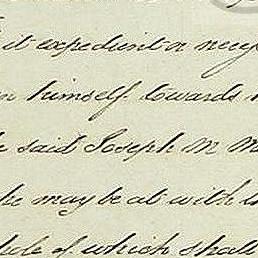 it expedient or
himself towards
said Joseph M
he may be at with
of which shall